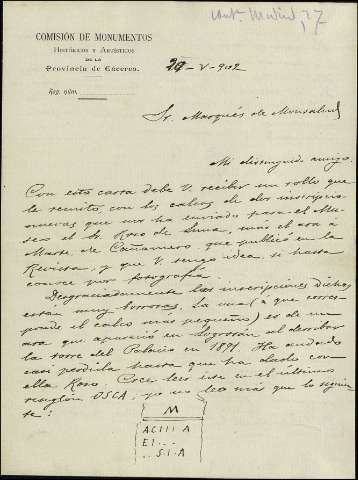 contº Madrid, 27
COMISIÓN DE MONUMENTOS
HISTÓRICOS Y ARTÍSTICOS
DE LA
Provincia de Cáceres.
Reg. núm.
29-V-902
Sr. Marqués de Monsalud
Mi distinguido amigo:
Con esta carta debe V. recibir un rollo que
le remito, con los calcos de dos inscripcio
nes nuevas que nos ha enviado para el Mu-
seo el Sr. Roso de Luna, más el ara á
Marte de Cañamero que publicó en la
Revista, y que V. tengo idea si hasta
conoce por fotografía.
Desgraciadamente las inscripciones dichas
están muy borrosas. La una (á que corres-
ponde el calco más pequeño) es de un
ara que apareció en Logrosán al derribar
la torre del Palacio en 1891. Ha andado
casi perdida hasta que ha dado con
ella Roso. Cree leer éste en el último
renglón OSCA; yo no leo más que lo siguien
te:
M
ACIII·A
EI...
..S·I·A